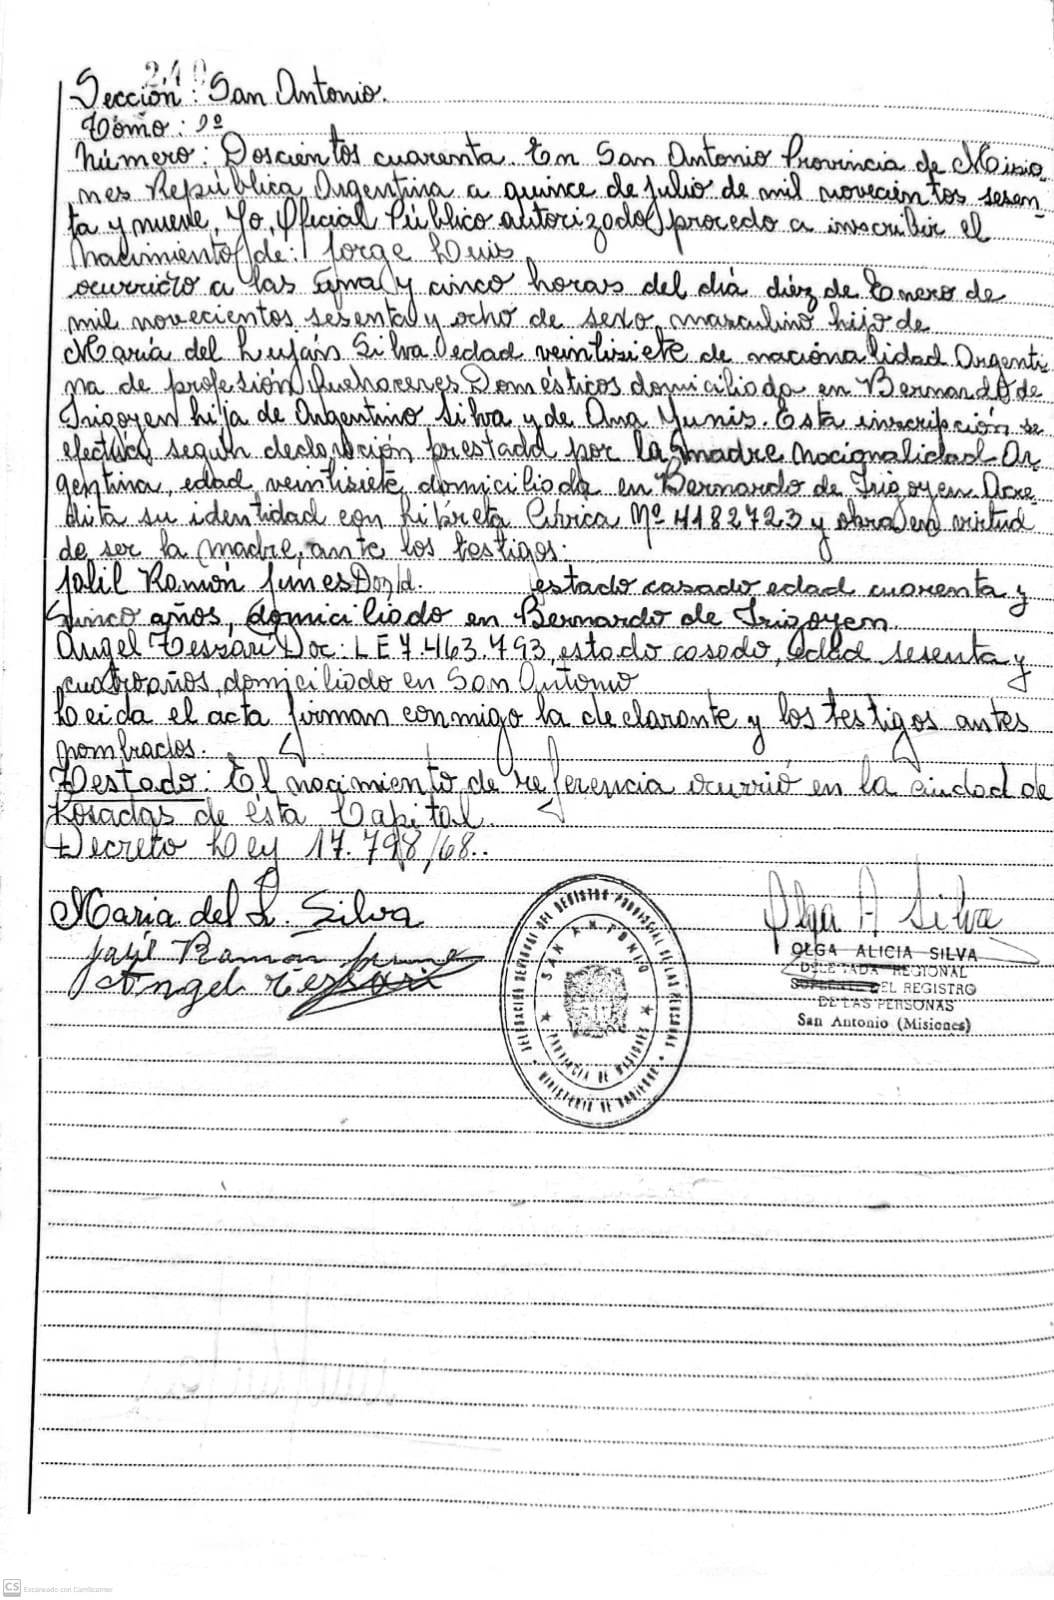 240
Sección: San Antonio.
Tomo: 2º
Número: Doscientos cuarenta. En San Antonio Provincia de Misio
nes República Argentina a quince de julio de mil novecientos sesen
ta y nueve, Yo, Oficial Público autorizado, procedo a inscribir el
Nacimiento de: Jorge Luis
ocurrido a las una y cinco horas del día diéz de Enero de
mil novecientos sesenta y ocho de sexo masculino hijo de
María del Luján Silva edad veintisiete de nacionalidad Argenti
na de profesión Quehaceres Domésticos domiciliada en Bernardo de
Irigoyen hija de Argentino Silva y de Ana Yunis. Esta inscripción se
efectúa según declaración prestada por la madre nacionalidad Ar
gentina, edad veintisiete, domiciliada en Bernardo de Irigoyen. Acre
dita su identidad con Libreta Cívica Nº 4182723 y obra en virtud
de ser la madre, ante los testigos:
Jalil Ramón Junes estado casado edad cuarenta y
cinco años, domiciliado en Bernardo de Irigoyen.
Angel Tessari Doc: L E 7.463.793, estado casado, edad sesenta y
cuatro años, domiciliado en San Antonio
Leida el acta firman conmigo la declarante y los testigos antes
nombrados.
Testado: El nacimiento de referencia ocurrió en la ciudad de
Posadas de ésta Capital.
Decreto Ley 17.798/68..
Maria del L. Silva
Jalil Ramón June
Angel Tessari
DELEGACION REGIONAL DEL REGISTRO PROVINCIAL DE LAS PERSONAS
SAN ANTONIO
PROVINCIA DE MISIONES
MINISTERIO DE GOBIERNO
Olga A Silva
OLGA ALICIA SILVA
DELEGADA REGIONAL
SUPLENTE DEL REGISTRO
DE LAS PERSONAS
San Antonio (Misiones)
CS Escaneado con CamScanner